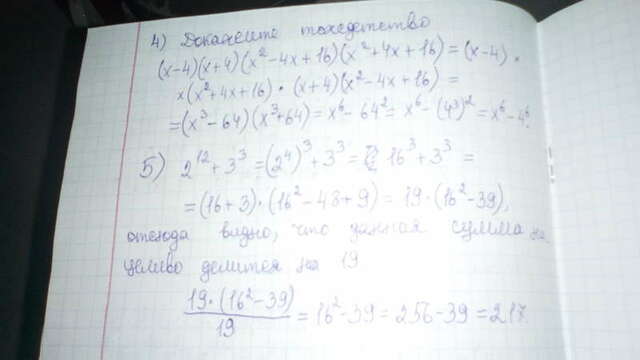 4) Докажите тождество
(x-4)(x+4)(x²-4x+16)(x²+4x+16) = (x-4) ·
x(x²+4x+16) · (x+4)(x²-4x+16) =
= (x³-64)(x³+64) = x⁶-64² = x⁶-(4³)² = x⁶-4⁶.
5) 2¹²+3³ = (2⁴)³+3³ = 16³+3³ =
= (16+3)·(16²-48+9) = 19·(16²-39),
отсюда видно, что данная сумма на
целиво делится на 19
19·(16²-39)
19
= 16²-39 = 256-39 = 217.